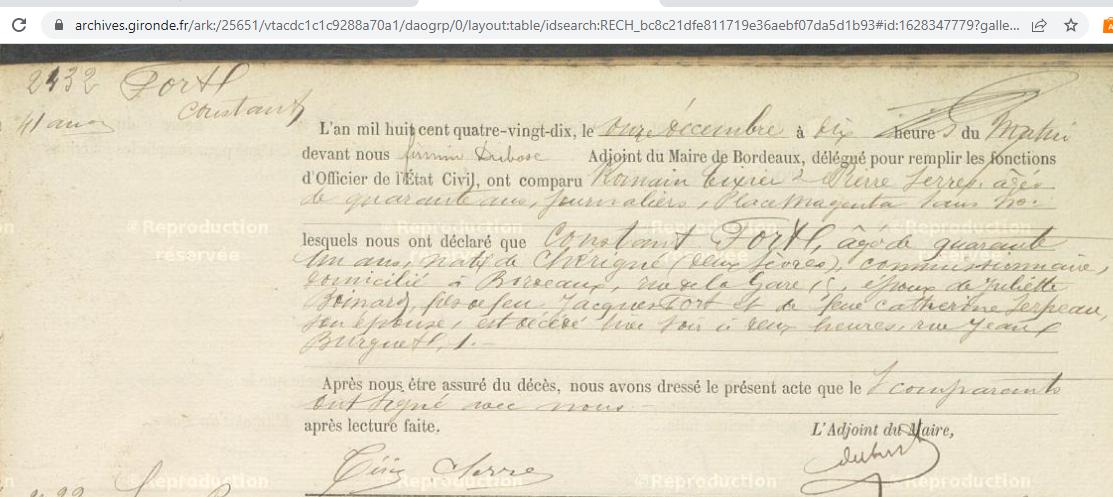 archives.gironde.fr/ark:/25651/vtacdc1c1c9288a70a1/daogrp/0/layout:table/idsearch:RECH_bc8c21dfe811719e36aebf07da5d1b93#id:1628347779?galle...
2432 Fort
Constant
41 ans
L'an mil huit cent quatre-vingt-dix, le onze décembre à dix heures du Matin
devant nous Firmin Dubosc Adjoint du Maire de Bordeaux, délégué pour remplir les fonctions
d'Officier de l'État Civil, ont comparu Romain Texier & Pierre Serres, âgés
de quarante ans, journaliers, Place Magenta
lesquels nous ont déclaré que Constant Fort, âgé de quarante
un ans, natif de Chérigné (Deux Sèvres), commissionnaire,
domicilié à Bordeaux, rue de la Gare 15, époux de Juliette
Boinard, fils de feu Jacques Fort et de feue Catherine Serpeau,
son épouse, est décédé hier soir à deux heures, rue Jean
Burguet, 1.-
Après nous être assuré du décès, nous avons dressé le présent acte que les comparants
ont signé avec nous
après lecture faite.
L'Adjoint du Maire,
Serres
©Reproduction
réservée
©Reproduction
réservée
©Reproduction
réservée
©Reproduction
©Reproduction
©Reproduction